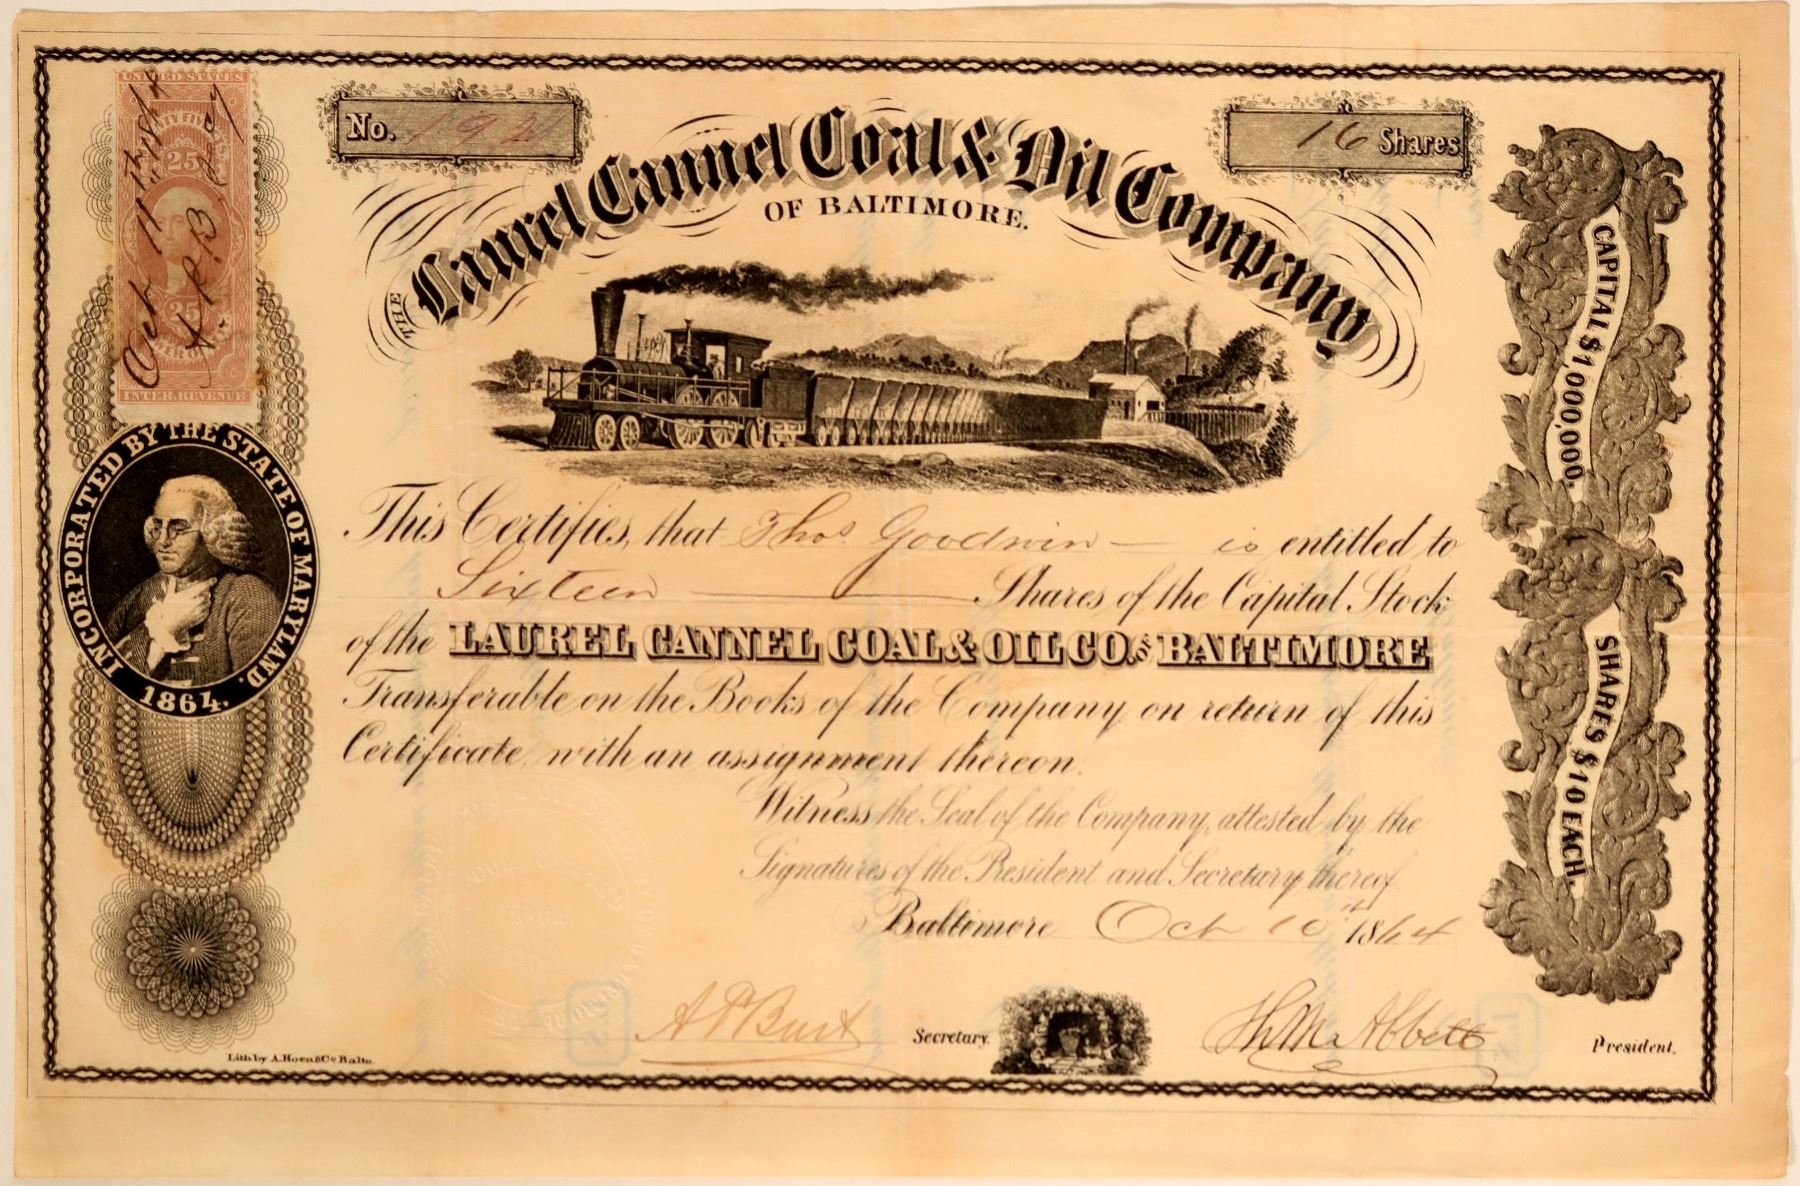 UNITED STATES
TWENTY FIVE CTS.
25
25
INTER. REVENUE
Oct 11th 1864
A P B
No. 192
16 Shares
THE Laurel Cannel Coal & Oil Company
OF BALTIMORE.
INCORPORATED BY THE STATE OF MARYLAND.
1864.
CAPITAL $1,000,000.
SHARES $10 EACH.
This Certifies, that Thos. Goodwin is entitled to
Sixteen Shares of the Capital Stock
of the LAUREL CANNEL COAL & OIL CO. OF BALTIMORE
Transferable on the Books of the Company on return of this
Certificate with an assignment thereon.
Witness the Seal of the Company, attested by the
Signatures of the President and Secretary thereof
Baltimore Oct 10th 1864
A P Burt Secretary.
Abbett President.
Lith by A. Hoen & Co Balto.